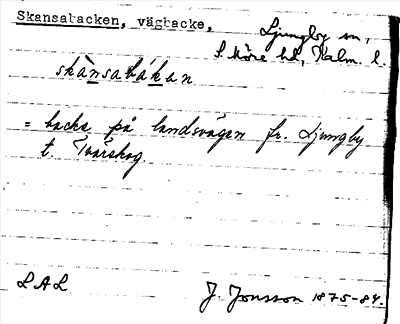 Skansabacken, vägbacke,
Ljungby sn,
S. Möre hd, Kalm. l.
skánsabákan
= backe på landsvägen fr. Ljungby
t. Tvärskog.
LAL
J. Jonsson 1875-84.